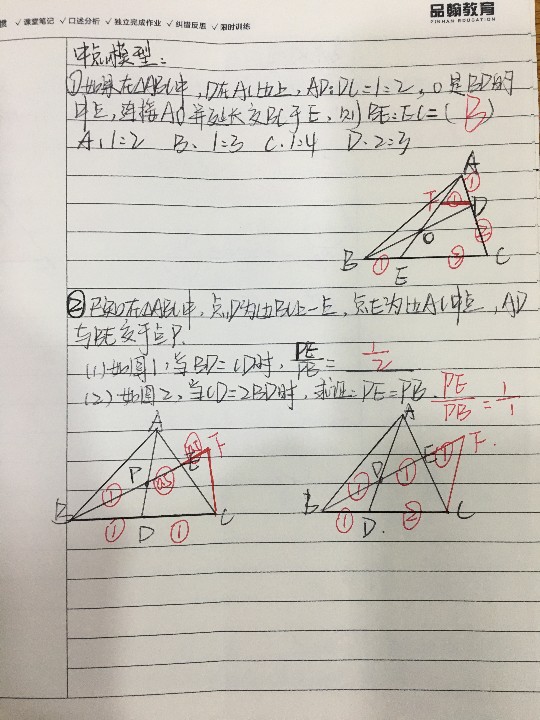 惯 ✓课堂笔记 ✓口述分析 ✓独立完成作业 ✓纠错反思 ✓限时训练
品翰教育
PINHAN EDUCATION
中点模型:
①如果在△ABC中,D在AC边上,AD:DC=1:2,O是BD的
中点,连接AO并延长交BC于E,则BE:EC=( B )
A.1:2 B.1:3 C.1:4 D.2:3
A
①
F ① D
②
O
B ① E ③ C
②已知在△ABC中,点D为边BC上一点,点E为边AC中点,AD
与BE交于点P.
(1)如图1,当BD=CD时,PE/PB=1/2
(2)如图2,当CD=2BD时,求证:PE=PB. PE/PB=1/1
A
F
P E
B ① D ① C
A
E ① F.
P ①
①
B ① D. ② C